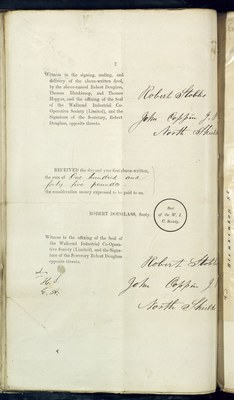 3
Witness to the signing, sealing, and
delivery of the above-written deed,
by the above-named Robert Douglass,
Thomas Hindmarsh, and Thomas
Heppen, and the affixing of the Seal
of the Wallsend Industrial Co-
Operative Society (Limited), and the
Signature of the Secretary, Robert
Douglass, opposite thereto.
Robert Stobbs
John Coppin J.
North Shields
RECEIVED the day and year first above-written,
the sum of Five hundred and
forty five pounds
the consideration money expressed to be paid to us.
ROBERT DOUGLASS, Secty.
Seal
of the W. I.
C. Society.
Witness to the affixing of the Seal of
the Wallsend Industrial Co-Opera-
tive Society (Limited), and the Signa-
ture of the Secretary Robert Douglass
opposite thereto.
Robert Stobbs
John Coppin J
North Shields